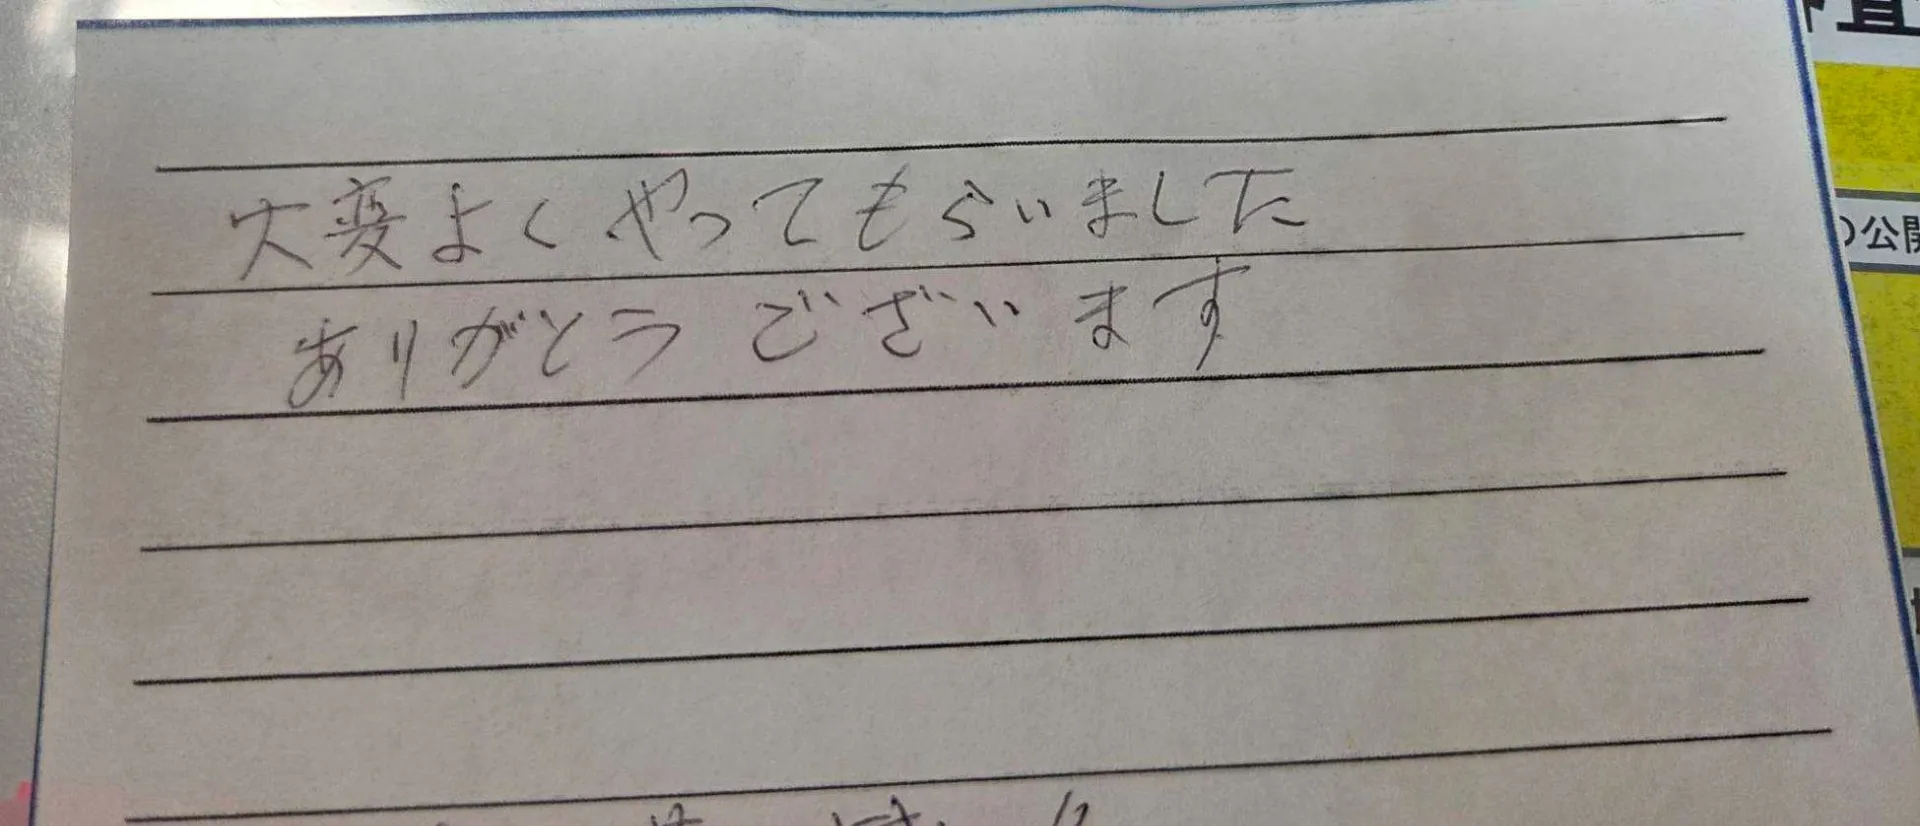 大変よくやってもらいました
ありがとうございます
の公開